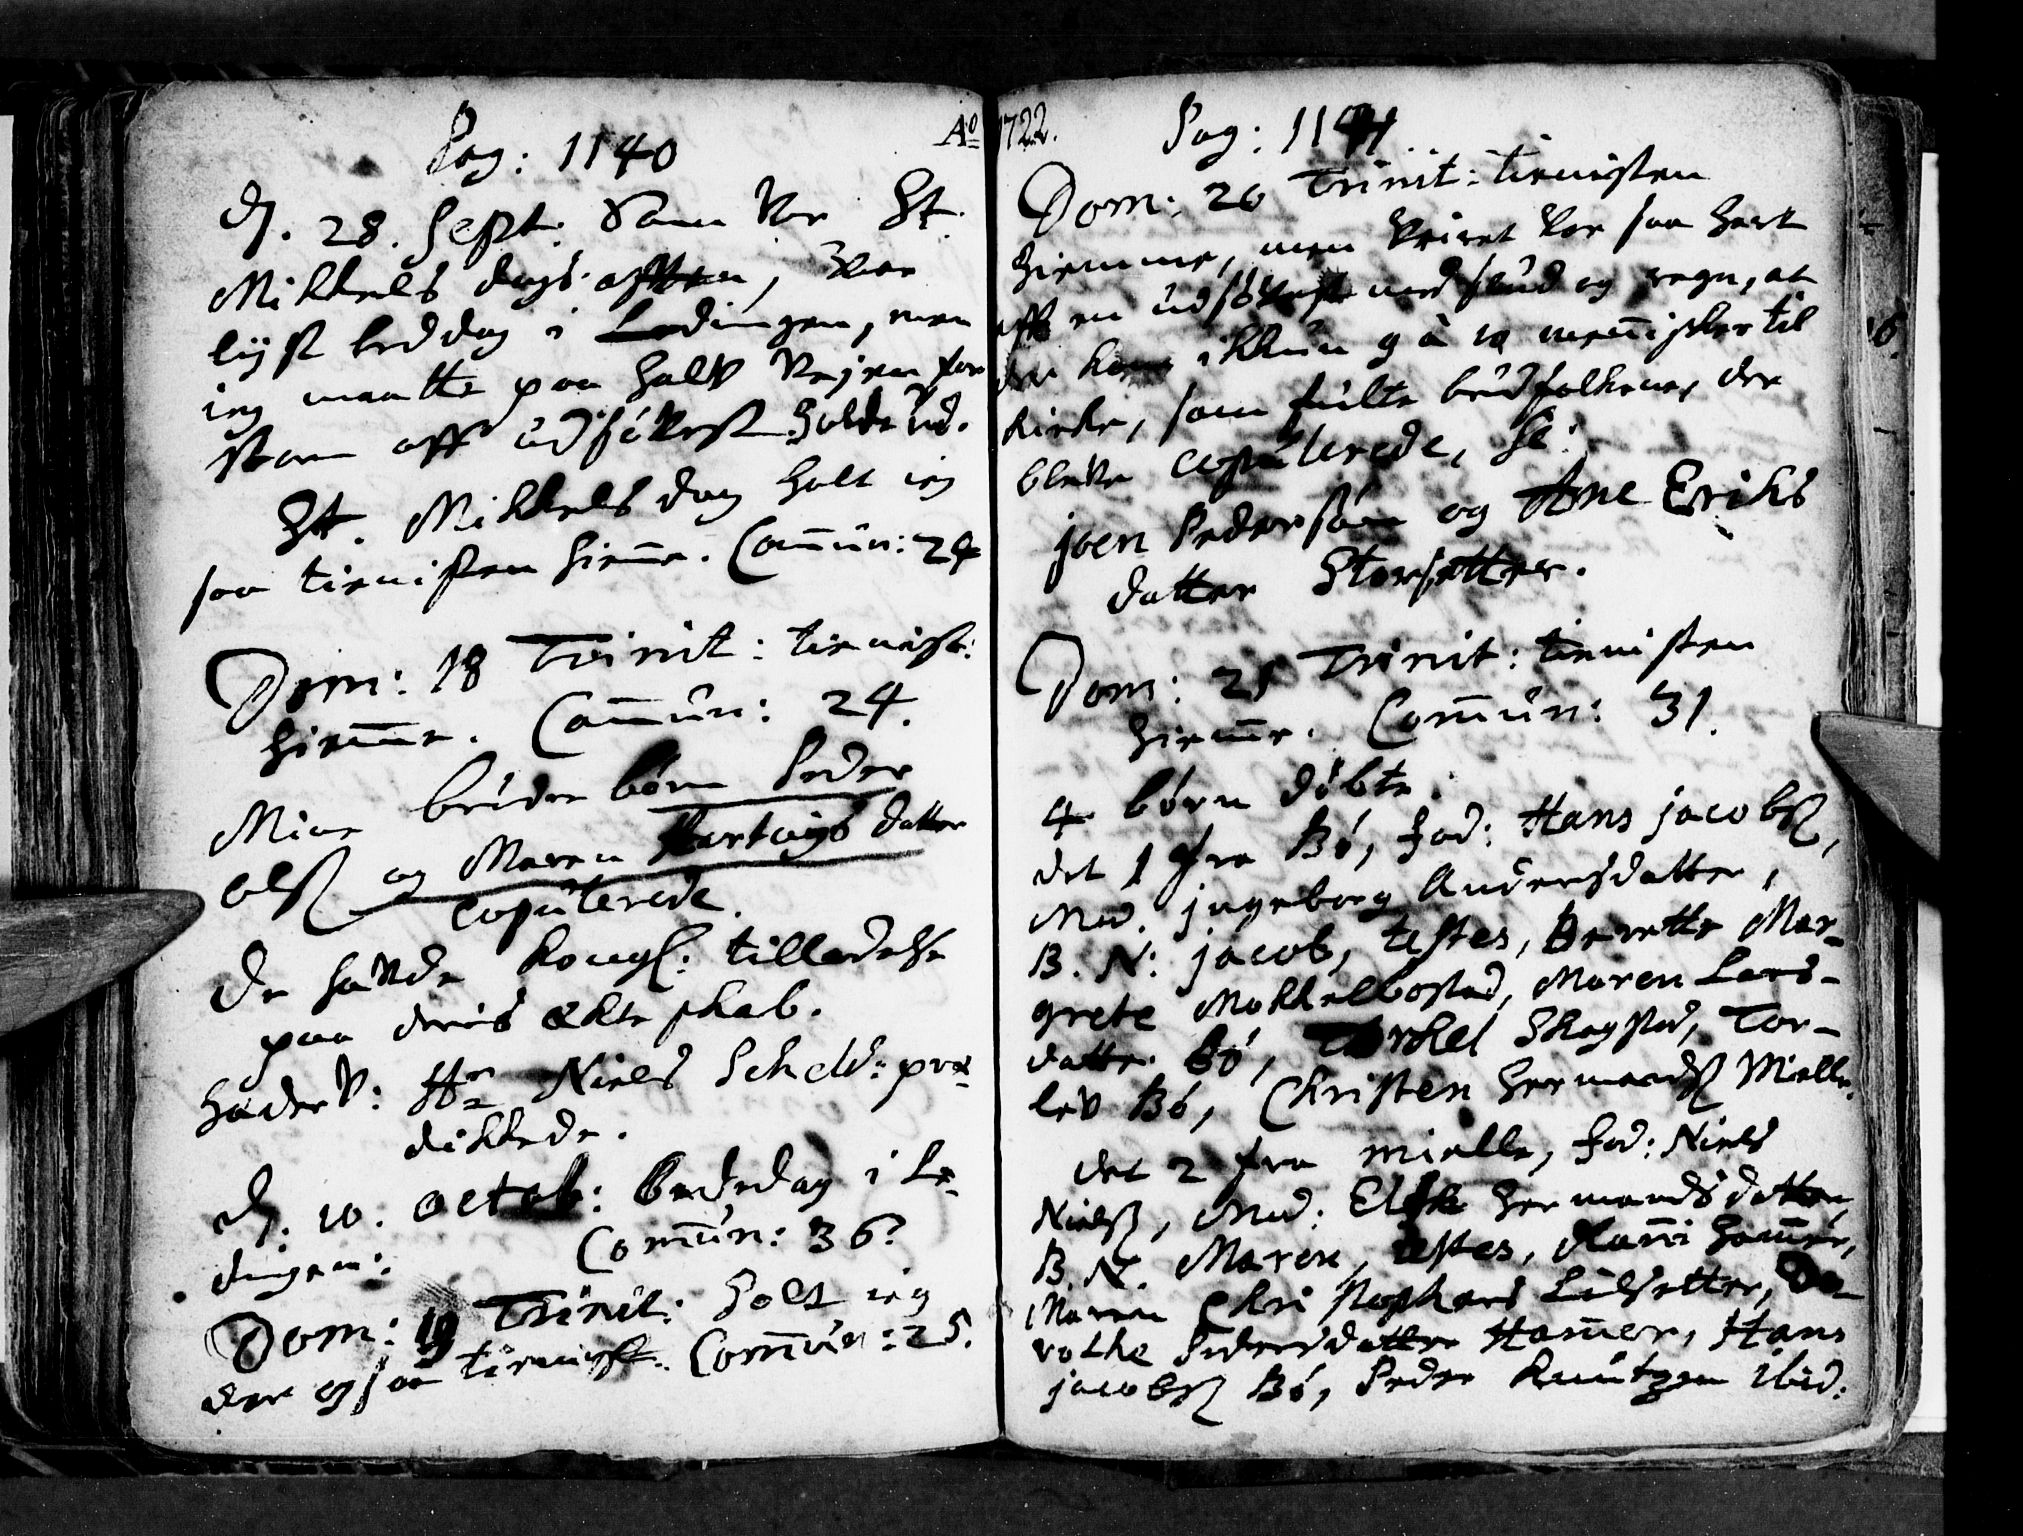 Pag: 1140
Ao 1722.
D. 28. Sept: Som Var St.
Mikkels dags afften, Var
lyst beddag i Lødingen, men
ieg maatte paa halv Vejen for
storm aff udsøVest holde ud.
St. Mikkels dag holt ieg
saa tienisten hieme. Comun: 24
Dom: 18 Trinit: tienist:
hieme. Comun: 24.
Mine brude børn Peder
Olsß og Maren Hartvigs datter
copulerede.
De hafde Kongl: tilladelse
paa deris ekte skab.
HaderV: Hr Niels Scheld: præ-
dikkede.
D. 10. Octob: Bededag i Lø-
dingen: Comun: 36?
Dom: 19 Trinit: holt ieg
der ogsaa tienist. Comun: 25.
Pag: 1141
Dom: 20 Trinit: tienisten
hiemme, men Veiret Var saa hart
aff en udsøVest med slud og regn, at
der kom ikkun 9 à 10 menisker til
kirke, som fulte brudfolkene, der
bleVe copulerede, Sc:
joen Pedersøn og Ane Eriks
datter Storsetter.
Dom: 21 Trinit: tienisten
hieme. Comun: 31.
4 børn døbte:
det 1 fra Bø, fad: Hans jacobsß,
Mod. jngeborg Andersdatter,
B. N: jacob, testes, Berette Mar-
grete Mokkelbostad, Maren Lars-
datter Bø, Torkel Skogstad, Tor-
lev Bø, Christen Hermandsß Mielle.
det 2 fra Mielle, fad: Niels
Nielsß, Mod: Else Hermandsdatter,
B. N. Maren, testes, Kari Hamer,
Maren Christophers Lilsetter, Do-
rothe Pedersdatter Hamer, Hans
jacobsß Bø, Peder Knutzen ibid: